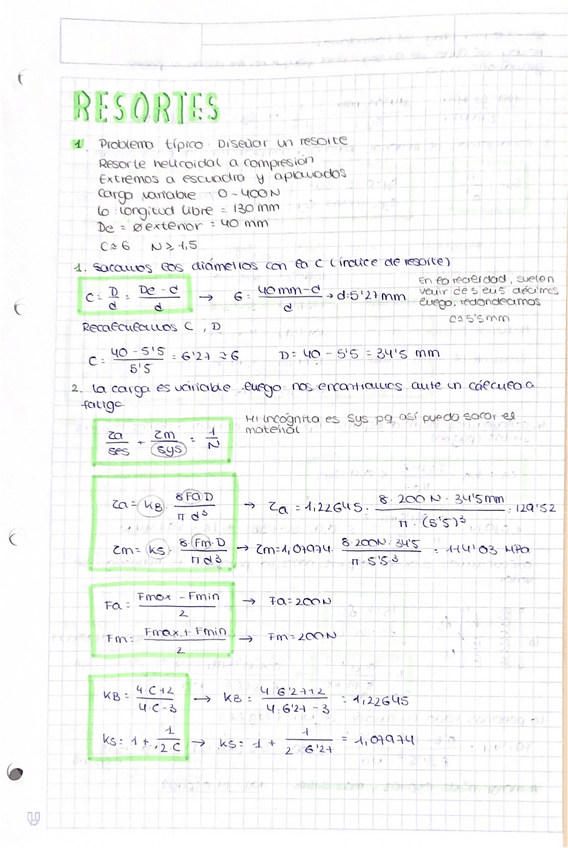 RESORTES
1. Problema típico: Diseñar un resorte
Resorte helicoidal a compresión
Extremos a escuadra y aplanados
Carga variable 0-400N
lo longitud libre = 130 mm
De = ø exterior = 40 mm
C≈6 N≥1,5
1. Sacamos los diámetros con la C (índice de resorte)
C = D/d = De-d/d → 6 = 40mm-d/d → d=5'27mm
En la realidad, suelen
venir de 5 en 5 décimas
luego, redondeamos
≈5'5mm
Recalculamos C, D
C = 40-5'5/5'5 = 6'27 ≈ 6 D = 40-5'5 = 34'5 mm
2. la carga es variable luego nos encontramos ante un cálculo a
fatiga
Mi incógnita es Sys pq así puedo sacar el
material
τa/ses + τm/sys = 1/N
τa = KB · 8·Fa·D/π d³ → τa = 1,22645 · 8·200N·34'5mm/π·(5'5)³ = 129'52
τm = Ks · 8·Fm·D/π d³ → τm = 1,07974 · 8·200N·34'5/π·5'5³ = 114'03 MPa
Fa = Fmax - Fmin/2 → Fa = 200N
Fm = Fmax + Fmin/2 → Fm = 200N
KB = 4·C+2/4·C-3 → KB = 4·6'27+2/4·6'27-3 = 1,22645
Ks = 1 + 1/2·C → Ks = 1 + 1/2·6'27 = 1,07974